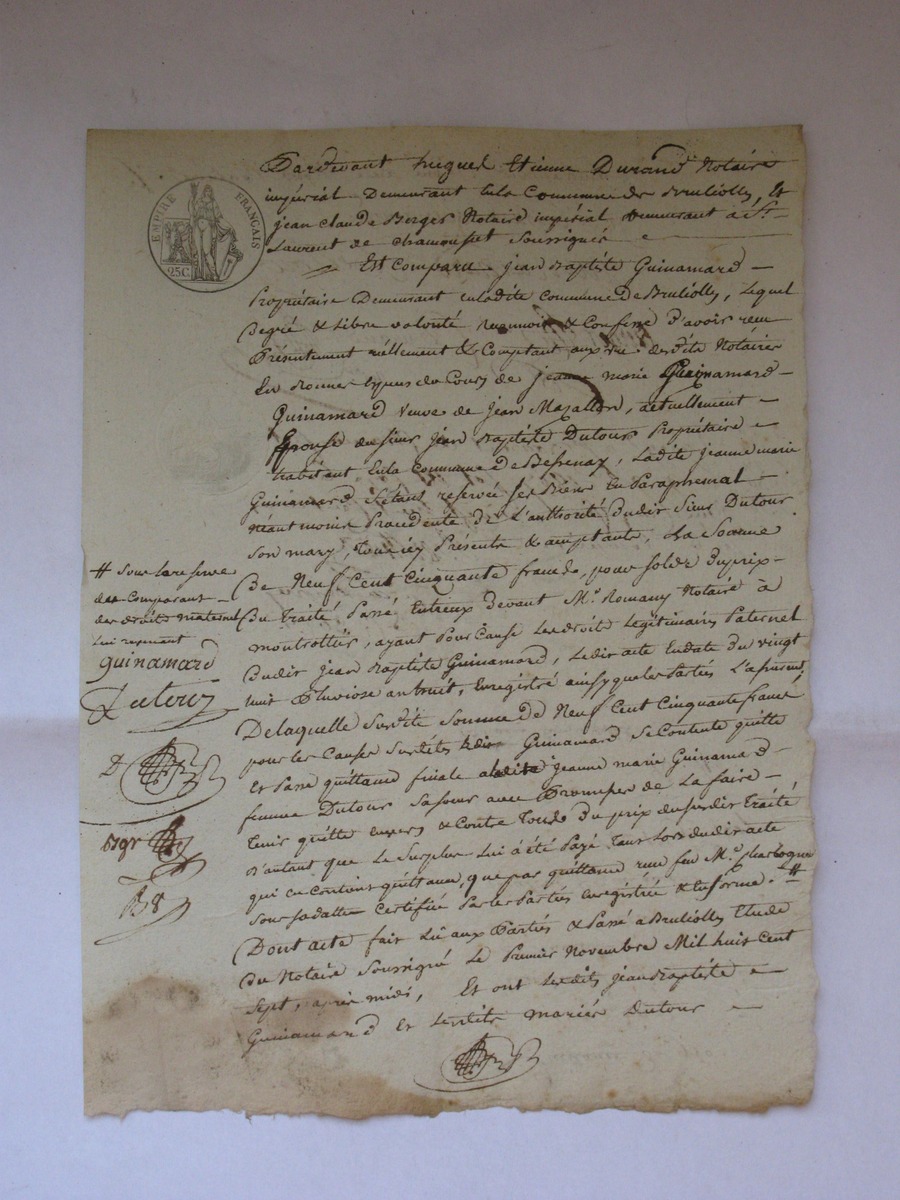 EMPIRE FRANÇAIS
25C
Pardevant huguel Etienne Durand Notaire
impérial Demeurant en la Commune de Brulliolles, Et
jean Claude Berger Notaire impérial Demeurant à St.
Laurent de chamousset Soussignés
Est Comparu jean Baptiste Guinamard
Propriétaire Demeurant en ladite Commune de Brulliolles, lequel
De gré & libre volonté reconnoit & Confesse D'avoir reçu
Présentement réellement & Comptant aux vue desdits Notaires
En bonnes Espèces du Cours de jeanne marie Guinamard
Guinamard veuve de jean Mazallon, actuellement
Epouse du sieur jean Baptiste Dutour Propriétaire
habitant En la Commune de Bessenay, Ladite jeanne marie
Guinamard S'étant reservée ses Biens En Paraphernal
néantmoins Procédente de L'authorité dudit Sieur Dutour
son mary, tous icy Présents & acceptants, La Somme
De Neuf Cent Cinquante francs, pour Solde du prix
Du Traité Passé Entreux Devant Me. Romany Notaire à
montrottier, ayant Pour Cause Les droits Légitimaires Paternel
Dudit jean Baptiste Guinamard, Ledit acte En date du vingt
huit Pluviose an huit, Enregistré ainsy que les Parties L'assurent,
De laquelle Susdite Somme de Neuf Cent Cinquante francs
pour les Causes Susdites Ledit Guinamard Se Contente quitte
et Passe quittance finale a ladite jeanne marie Guinamard
femme Dutour Sa soeur avec Promesse de La faire
tenir quitte envers & Contre Tous Du prix du susdit Traité
D'autant que Le Surplus Lui à été Payé Tant Lors dudit acte
qui en Contient quittance, que par quittance reçue feu Me.
Sous sa datte Certifiée Par les Parties Enregistrée & en forme. #
Dont acte fait Lû aux Parties & Passé a Brulliolles Etude
Du Notaire Soussigné Le Premier Novembre Mil huit Cent
Sept, après midi, Et ont Lesdits jean Baptiste
Guinamard et Lesdits mariés Dutour
# Sous la reserve
des Comparant
des droits maternel
Lui
guinamard
D